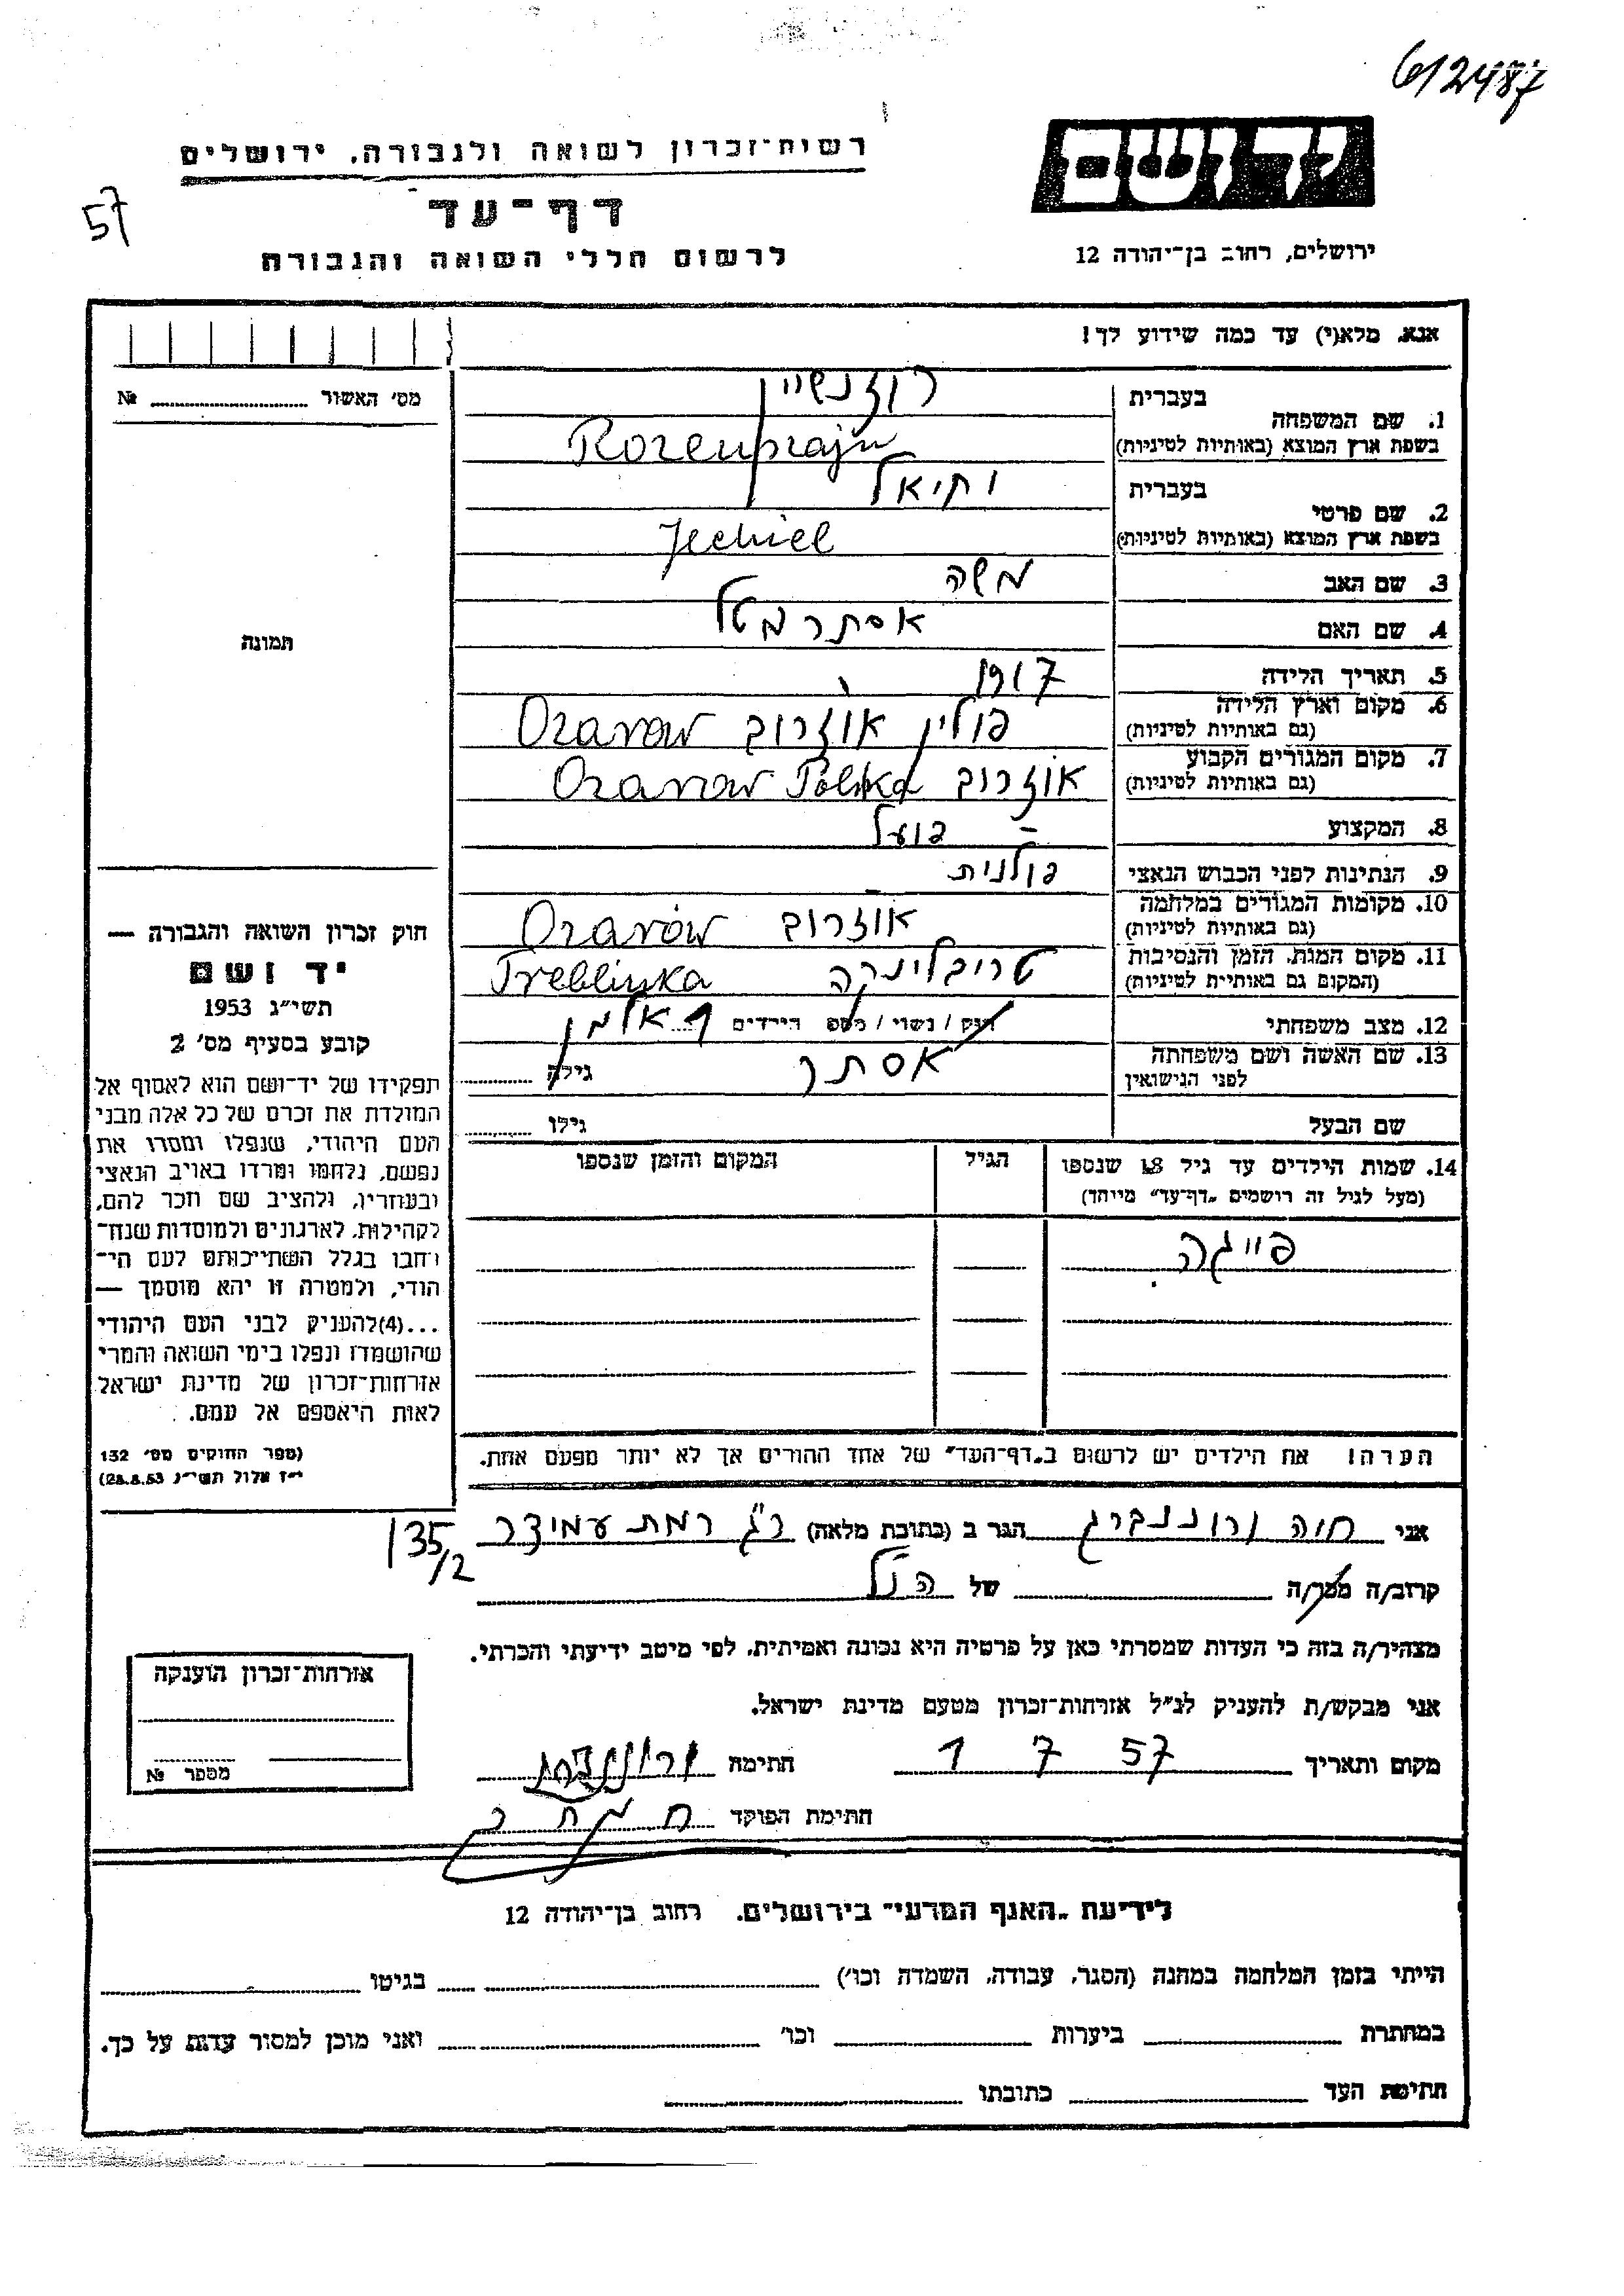 612487
יד ושם
רשות־זכרון לשואה ולגבורה, ירושלים
57
דף־עד
לרשום חללי השואה והגבורה
ירושלים, רחוב בן־יהודה 12
אנא, מלא(י) עד כמה שידוע לך!
מס׳ האשור № 
1. שם המשפחה
בעברית
בשפת ארץ המוצא (באותיות לטיניות)
2. שם פרטי
בעברית יחיאל
בשפת ארץ המוצא (באותיות לטיניות) Jechiel
3. שם האב משה
4. שם האם אסתר מטל
5. תאריך הלידה 1917
6. מקום וארץ הלידה פולין אוזרוב Ozarow
(גם באותיות לטיניות)
7. מקום המגורים הקבוע אוזרוב Ozarow Polska
(גם באותיות לטיניות)
8. המקצוע פועל
9. הנתינות לפני הכבוש הנאצי פולנית
10. מקומות המגורים במלחמה אוזרוב Ozarów
(גם באותיות לטיניות)
11. מקום המות, הזמן והנסיבות טריבלינקה Treblinka
(המקום גם באותיות לטיניות)
12. מצב משפחתי רוק / נשוי / מספ הילדים 1 אלמן
13. שם האשה ושם משפחתה אסתר גילה
לפני הנישואין
שם הבעל גילו
14. שמות הילדים עד גיל 18 שנספו הגיל המקום והזמן שנספו
(מעל לגיל זה רושמים „דף־עד” מיוחד)
פייגה
הערה! את הילדים יש לרשום ב„דף־העד” של אחד ההורים אך לא יותר מפעם אחת.
תמונה
חוק זכרון השואה והגבורה —
יד ושם
תשי״ג 1953
קובע בסעיף מס׳ 2
תפקידו של יד־ושם הוא לאסוף אל
המולדת את זכרם של כל אלה מבני
העם היהודי, שנפלו ומסרו את
נפשם, נלחמו ומרדו באויב הנאצי
ובעוזריו, ולהציב שם וזכר להם,
לקהילות, לארגונים ולמוסדות שנח־
רבו בגלל השתייכותם לעם הי־
הודי, ולמטרה זו יהא מוסמך —
...(4)להעניק לבני העם היהודי
שהושמדו ונפלו בימי השואה והמרי
אזרחות־זכרון של מדינת ישראל
לאות היאספם אל עמם.
(ספר החוקים מס׳ 132
י״ז אלול תשי״ג 28.8.53)
אני חוה הגר ב (כתובת מלאה) ר״ג רמת עמידר
135/2
קרוב/ה מכר/ה של הנ״ל
מצהיר/ה בזה כי העדות שמסרתי כאן על פרטיה היא נכונה ואמיתית, לפי מיטב ידיעתי והכרתי.
אני מבקש/ת להעניק לנ״ל אזרחות־זכרון מטעם מדינת ישראל.
מקום ותאריך 57 7 1 חתימה
חתימת הפוקד
אזרחות־זכרון הוענקה
מספר №
לידיעת „האגף המדעי” בירושלים, רחוב בן־יהודה 12
הייתי בזמן המלחמה במחנה (הסגר, עבודה, השמדה וכו׳) בגיטו
במחתרת ביערות וכו׳ ואני מוכן למסור עדות על כך.
חתימת העד כתובתו